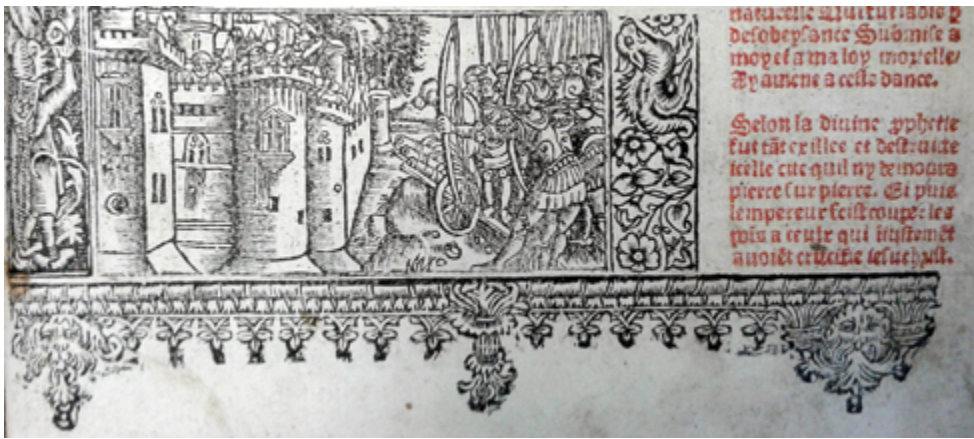 desobeysance Submise a
moy et a ma loy mortelle/
a ceste dance.
Selon la divine pphetie
fut tāt exillee et destruicte
icelle cite quil ny demoura
pierre sur pierre. Et puis
lempereur feist couper les
a ceulx qui iniustemēt
avoiēt crucifie iesuchrist.